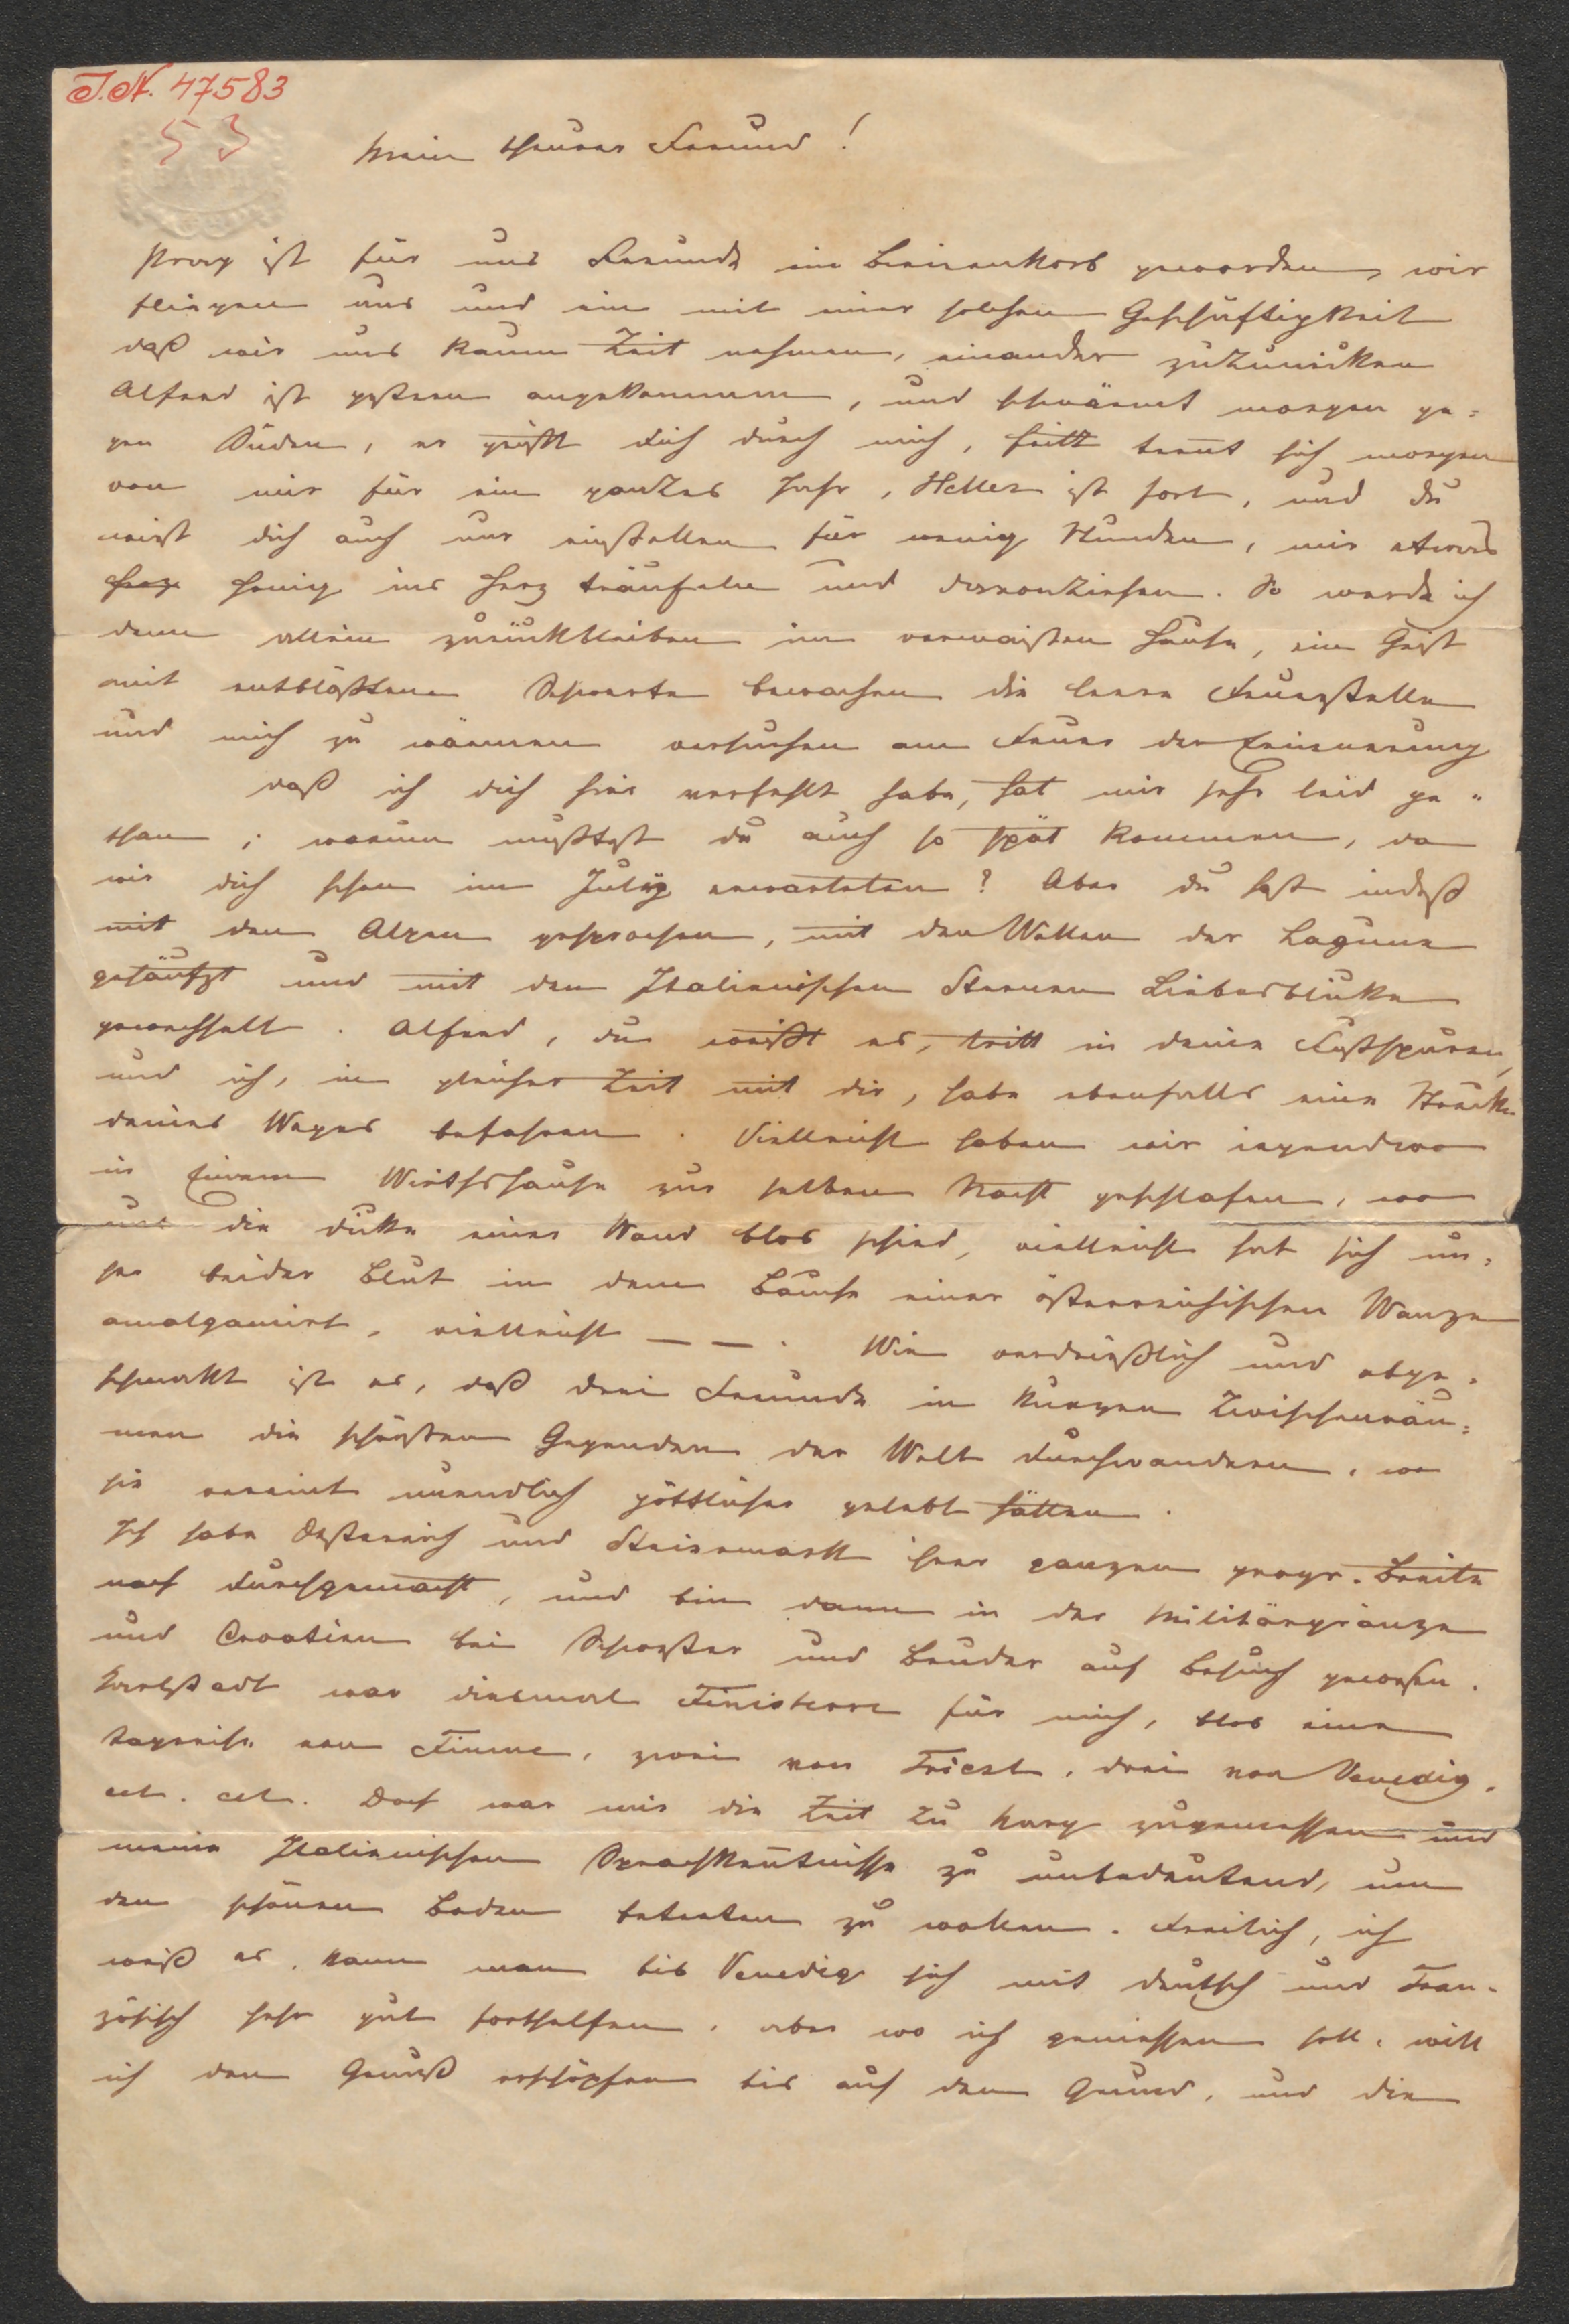 I.N. 47583
53
Mein theurer Freund!
Prag ist für uns Freunde ein Bienenkorb geworden, wir
fliegen aus und ein mit einer solchen Geschäftigkeit
daß wir uns kaum Zeit nehmen, einander zuzunicken
Alfred ist gestern angekommen, und schwärmt morgen ge=
gen Süden, er grüßt dich durch mich, Fritz trennt sich morgen
von mir für ein ganzes Jahr, Heller ist fort, und du
wirst dich auch nur einstellen für wenig Stunden, mir etwas
Honig ins Herz träufeln und davonziehen. So werde ich
denn allein zurückbleiben im verwaisten Hause, ein Geist
mit entblößtem Schwerte bewachen die leere Feuerstelle
und mich zu wärmen versuchen am Feuer der Erinnerung
daß ich dich hier verfehlt habe, hat mir sehr leid ge=
than; warum mußtest du auch so spät kommen, da
wir dich schon im July erwarteten? Aber du hast indeß
mit den Alpen gesprochen, mit den Wellen der Lagune
geseufzt und mit den Italienischen Sternen Liebesblicke
gewechselt. Alfred, du weißt es, tritt in deine Fußspuren,
und ich, in gleicher Zeit mit dir, habe ebenfalls eine Strecke
deines Weges befahren. Vielleicht haben wir irgendwo
in Einem Wirthshause zur selben Nacht geschlafen, wo
uns die Dicke einer Wand blos schied, vielleicht hat sich un=
ser beider Blut in dem Bauche einer österreichischen Wanze
amalgamirt, vielleicht — — . Wie verdrießlich und abge=
schmakt ist es, daß drei Freunde in kurzen Zwischenräu=
men die schönsten Gegenden der Welt durchwandern, wo
sie vereint unendlich göttlicher gelebt hätten.
Ich habe Oesterreich und Steiermark ihrer ganzen geogr. Breite
nach durchgemacht, und bin dann in der Militärgränze
und Croatien bei Schwester und Bruder auf Besuch gewesen.
Karlstadt war diesmal Finisterre für mich, blos eine
Tagreise von Fiume, zwei von Triest, drei von Venedig,
cet. cet. Doch war mir die Zeit zu karg zugemessen und
meine Italienischen Sprachkenntnisse zu unbedeutend, um
den schönen Boden betreten zu wollen. Freilich, ich
weiß es, kann man bis Venedig sich mit deutsch und Fran=
zösisch sehr gut forthelfen, aber wo ich genießen soll, will
ich den Genuß erschöpfen bis auf den Grund, und die